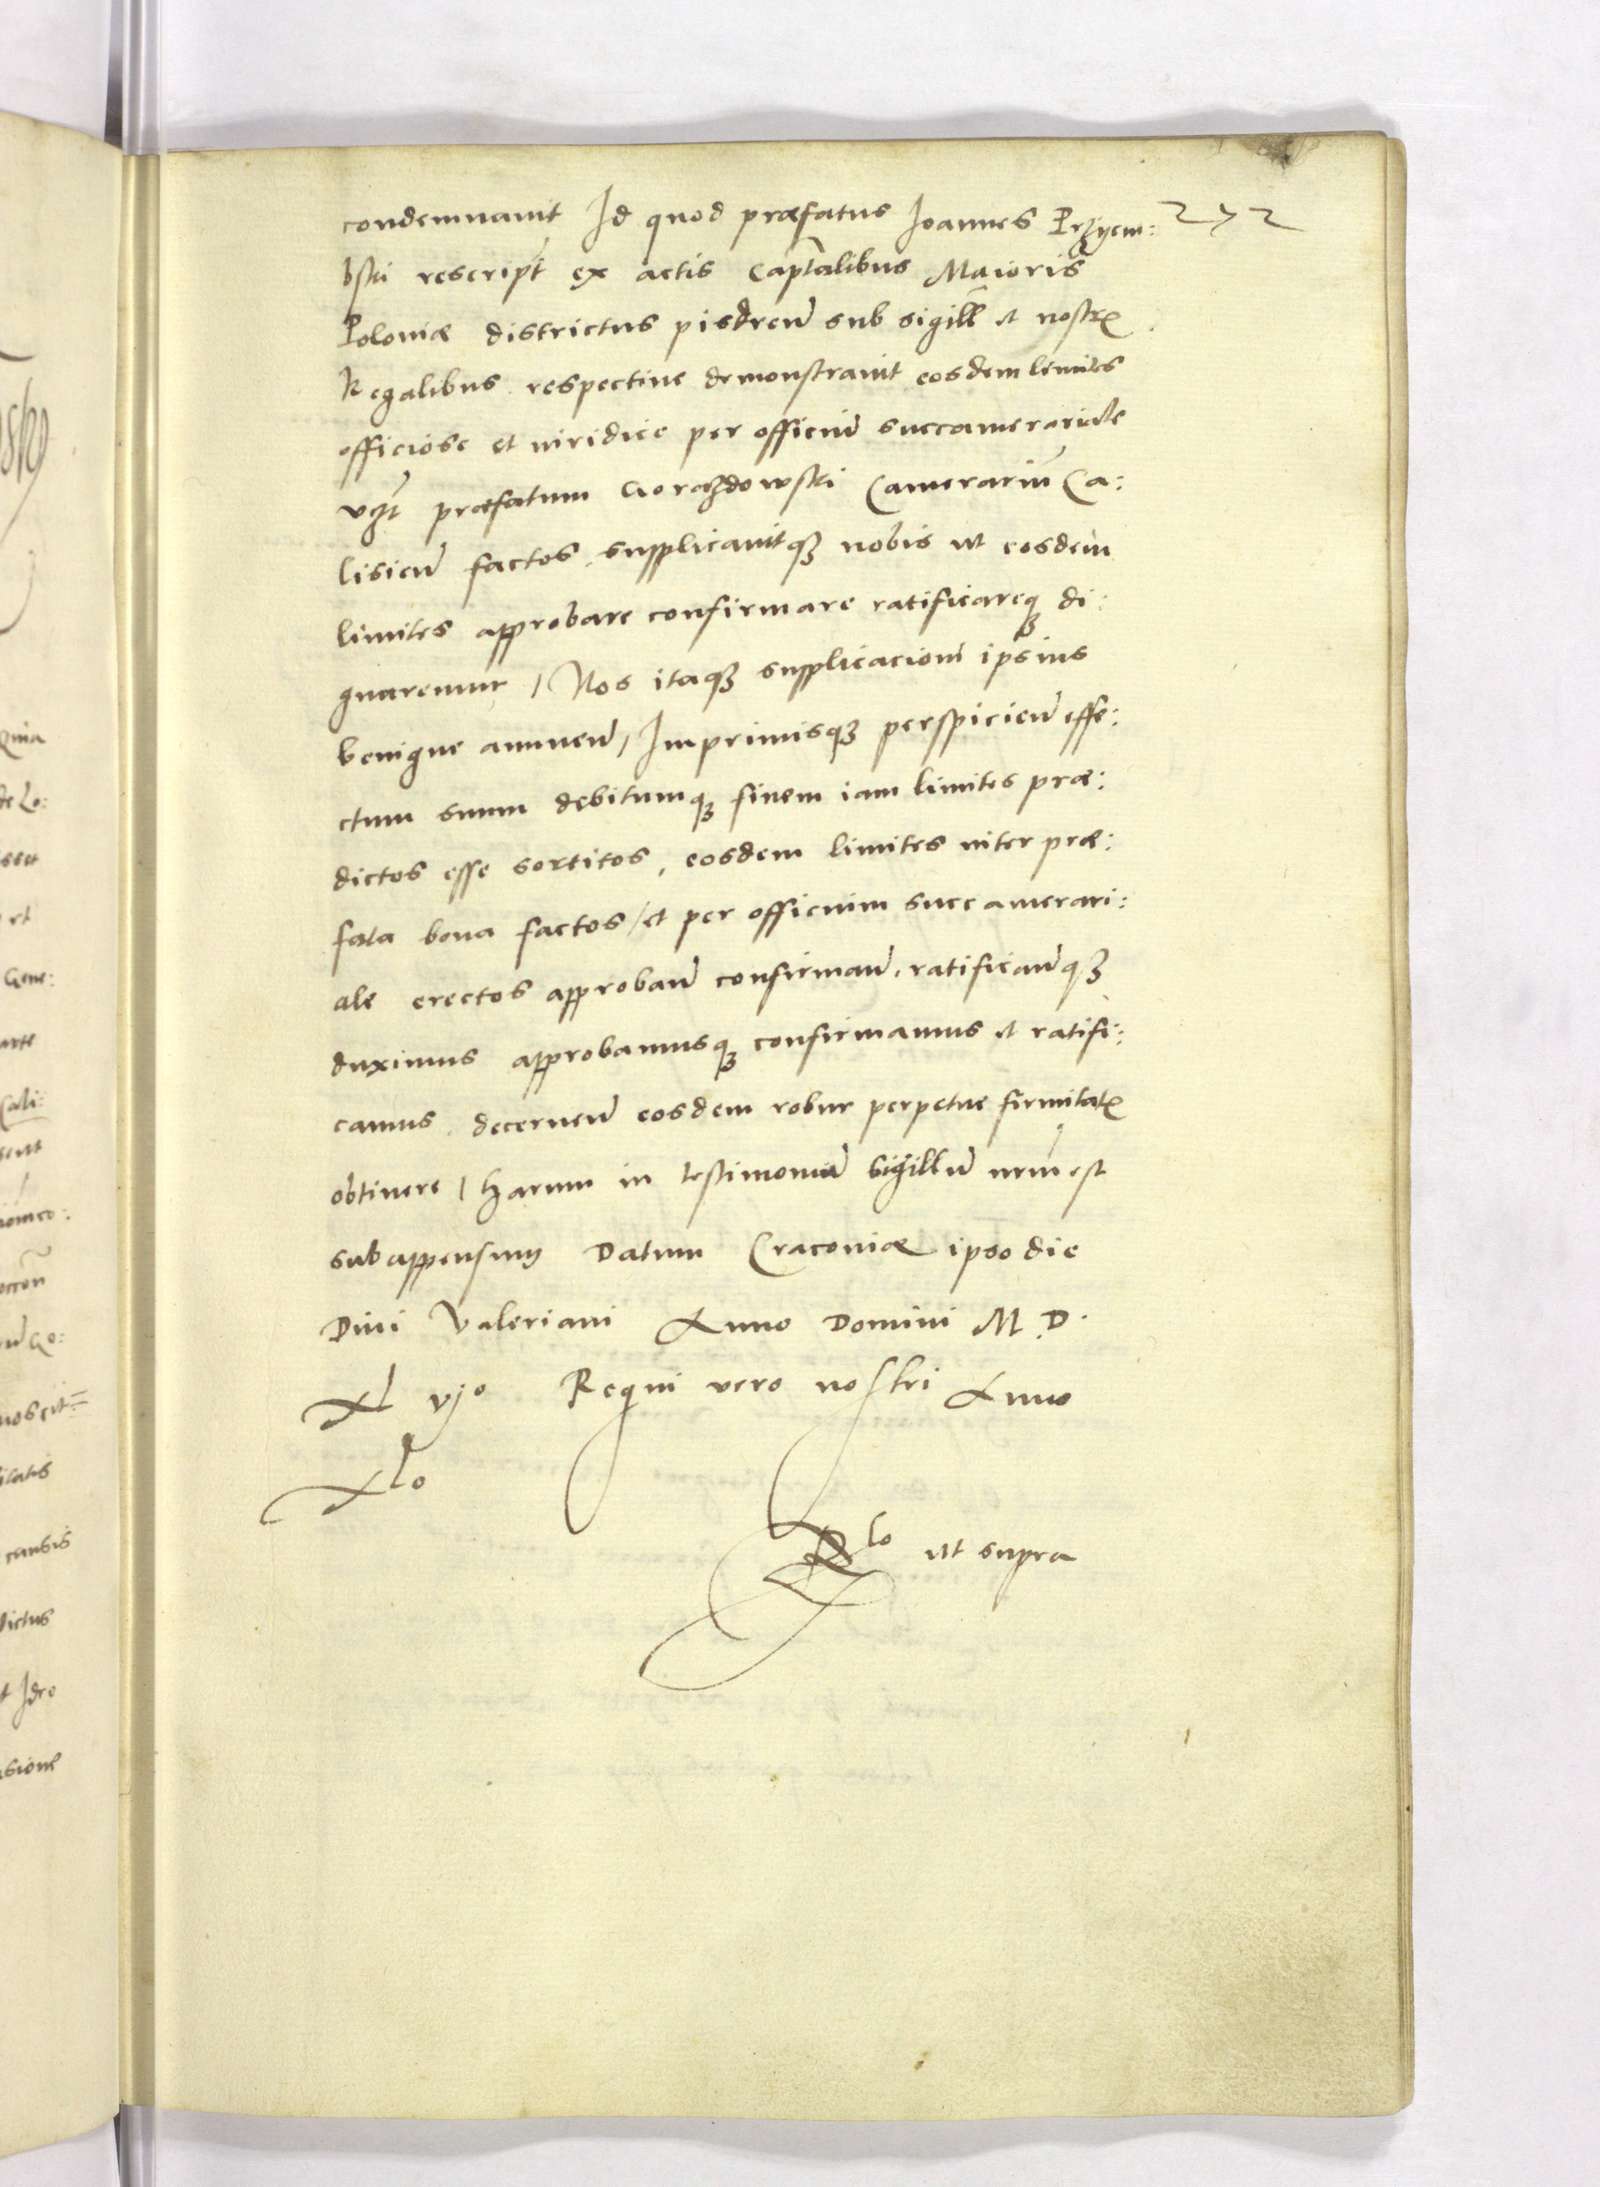 condemnauit Id quod præfatus Ioannes Przyem: 272
bski rescript ex actis Captalibus Maioris
Poloniæ districtus pisdren sub sigill et nostr
Regalibus respectiue demonstrauit eosdem limites
officiose et uiridice per officiu succamerariale
vzt præfatum Gorazdowski Camerariu Ca:
lisien factos, supplicauitqz nobis ut eosdem
limites approbare confirmare ratificareqz di:
gnaremur / Nos itaqz supplicacioni ipsius
benigne annuen, Imprimisqz perspicien effe:
ctum suum debitumqz finem iam limites præ:
dictos esse sortitos, eosdem limites inter præ:
fata bona factos / et per officium succamerari:
ale erectos approban confirman, ratificanqz
duximus approbamusqz confirmamus et ratifi:
camus, decernen eosdem robur perpetue firmitat
obtinere / Harum in testimoniu Sigillu nrm est
subappensum Datum Cracoviæ ipso die
Diui Valeriani Anno Domini M.D.
Xl vjº Regni vero nostri Anno
Xlo
Rlo ut supra